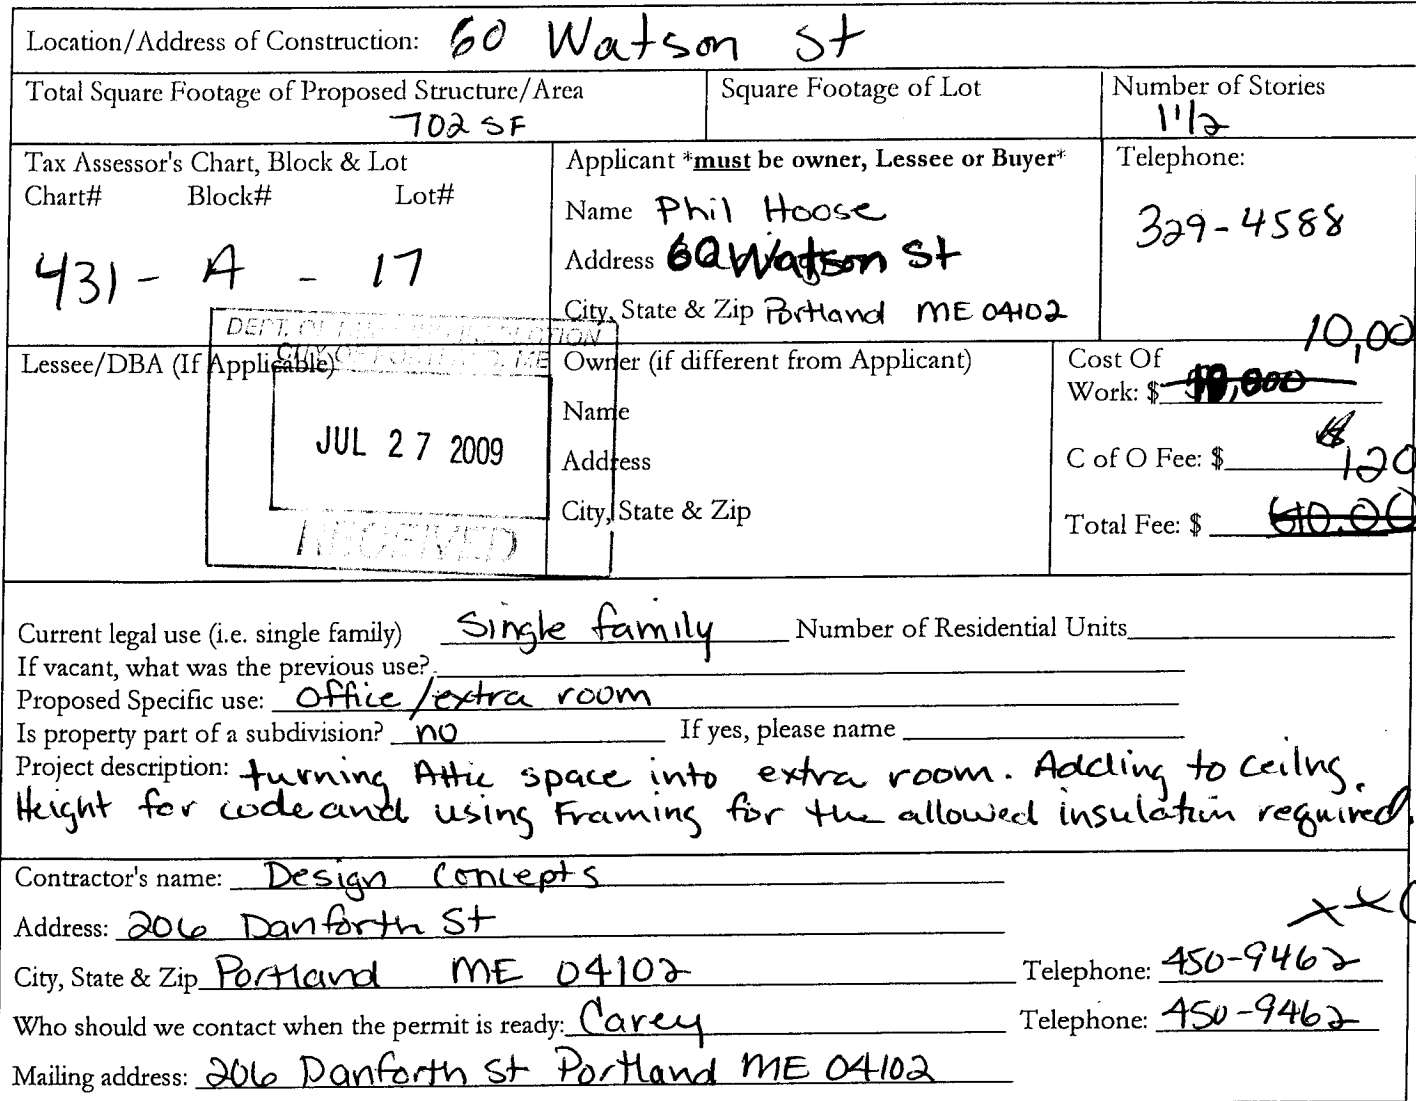 Location/Address of Construction: 60 Watson St
Total Square Footage of Proposed Structure/Area
702 SF
Square Footage of Lot
Number of Stories
1 1/2
Tax Assessor's Chart, Block & Lot
Chart# Block# Lot#
431 - A - 17
Applicant *must be owner, Lessee or Buyer*
Name Phil Hoose
Address 60 Watson St
City, State & Zip Portland ME 04102
Telephone:
329-4588
Lessee/DBA (If Applicable)
JUL 27 2009
RECEIVED
Owner (if different from Applicant)
Name
Address
City, State & Zip
10,00
Cost Of
Work: $
C of O Fee: $ 120
Total Fee: $ 610.00
Current legal use (i.e. single family) Single family Number of Residential Units
If vacant, what was the previous use?
Proposed Specific use: Office/extra room
Is property part of a subdivision? no If yes, please name
Project description: turning Attic space into extra room. Adding to ceilng.
Height for code and using Framing for the allowed insulation required.
Contractor's name: Design Concepts
Address: 206 Danforth St
City, State & Zip Portland ME 04102 Telephone: 450-9462
Who should we contact when the permit is ready: Carey Telephone: 450-9462
Mailing address: 206 Danforth St Portland ME 04102